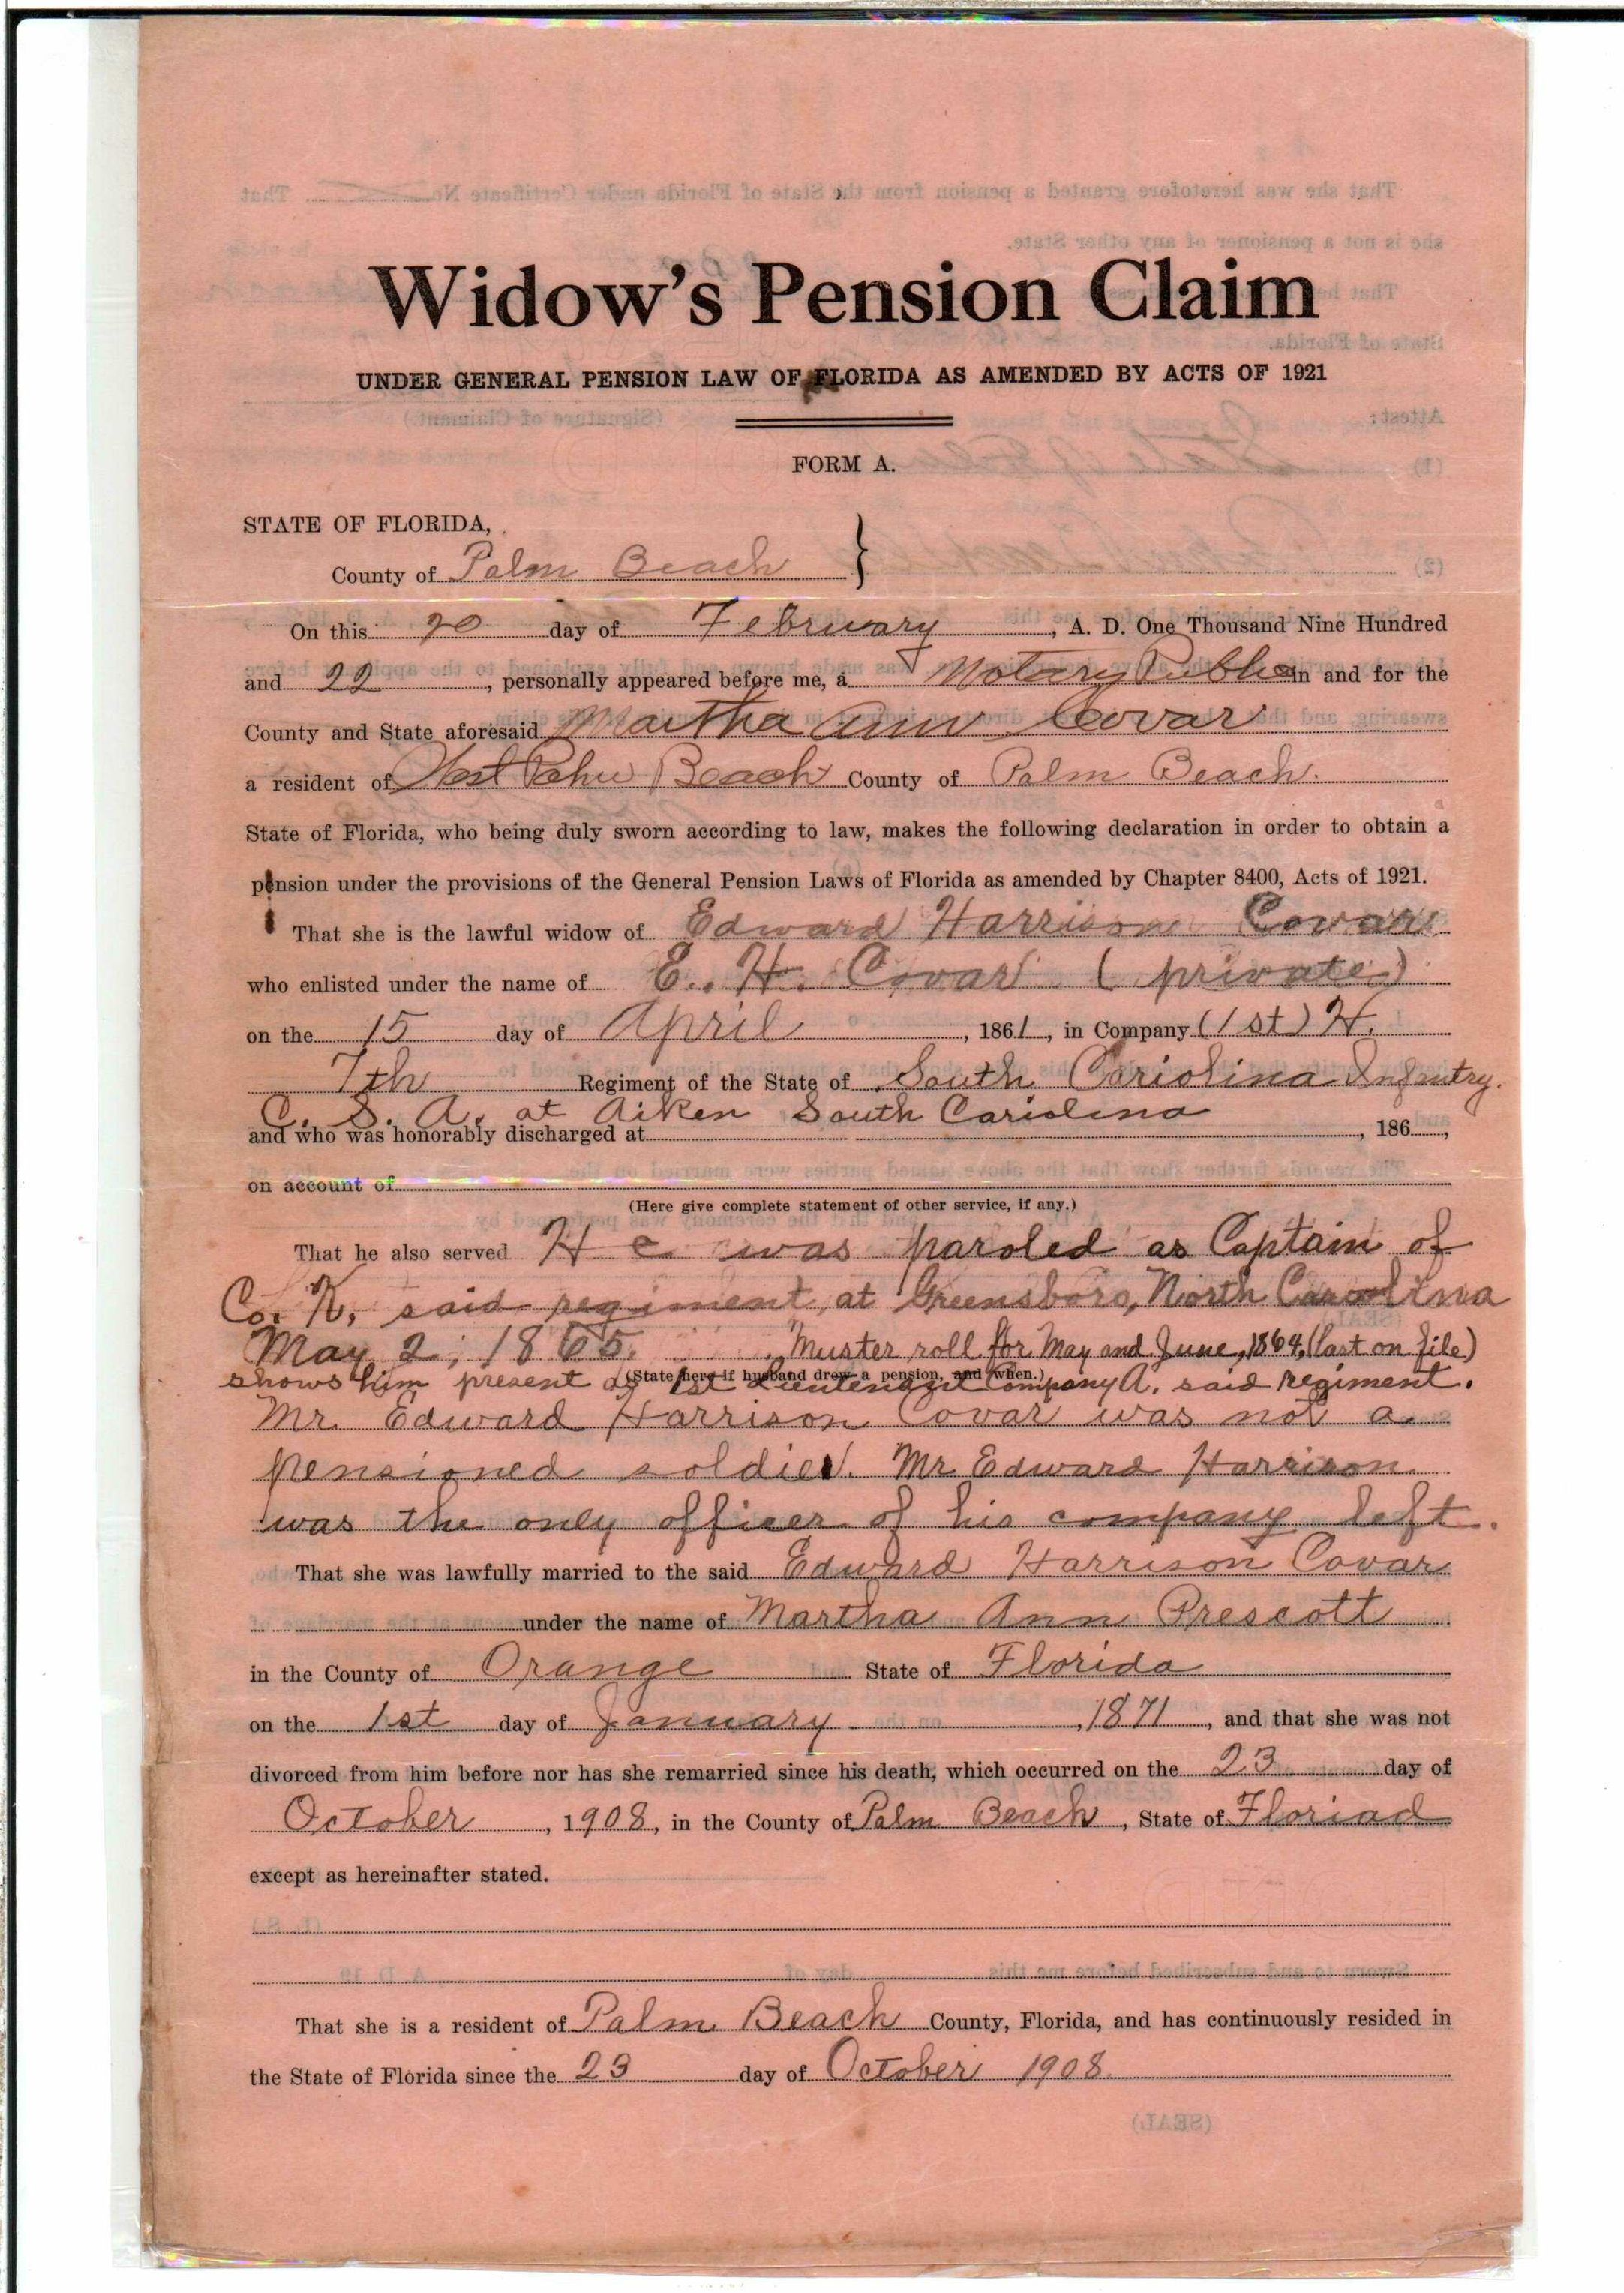 Widow's Pension Claim
UNDER GENERAL PENSION LAW OF FLORIDA AS AMENDED BY ACTS OF 1921
FORM A.
STATE OF FLORIDA,
County of Palm Beach }
On this 20 day of February, A. D. One Thousand Nine Hundred
and 22, personally appeared before me, a Notary Public in and for the
County and State aforesaid Martha Ann Covar
a resident of West Palm Beach County of Palm Beach.
State of Florida, who being duly sworn according to law, makes the following declaration in order to obtain a
pension under the provisions of the General Pension Laws of Florida as amended by Chapter 8400, Acts of 1921.
That she is the lawful widow of Edward Harrison Covar
who enlisted under the name of E. H. Covar (private)
on the 15 day of April, 1861, in Company (1st) H.
7th Regiment of the State of South Cariolina Infantry.
C. S. A. at Aiken South Cariolina
and who was honorably discharged at , 186 ,
on account of
(Here give complete statement of other service, if any.)
That he also served He was paroled as Captain of
Co. K, said regiment, at Greensboro, North Carolina
May 2, 1865. Muster roll for May and June, 1864, (last on file)
(State here if husband drew a pension, and when.)
shows him present as 1st Lieutenant Company A, said regiment.
Mr. Edward Harrison Covar was not a
pensioned soldier. Mr Edward Harrison
was the only officer of his company left.
That she was lawfully married to the said Edward Harrison Covar
under the name of Martha Ann Prescott
in the County of Orange State of Florida
on the 1st day of January, 1871, and that she was not
divorced from him before nor has she remarried since his death, which occurred on the 23 day of
October, 1908, in the County of Palm Beach, State of Floriad
except as hereinafter stated.
That she is a resident of Palm Beach County, Florida, and has continuously resided in
the State of Florida since the 23 day of October 1908.